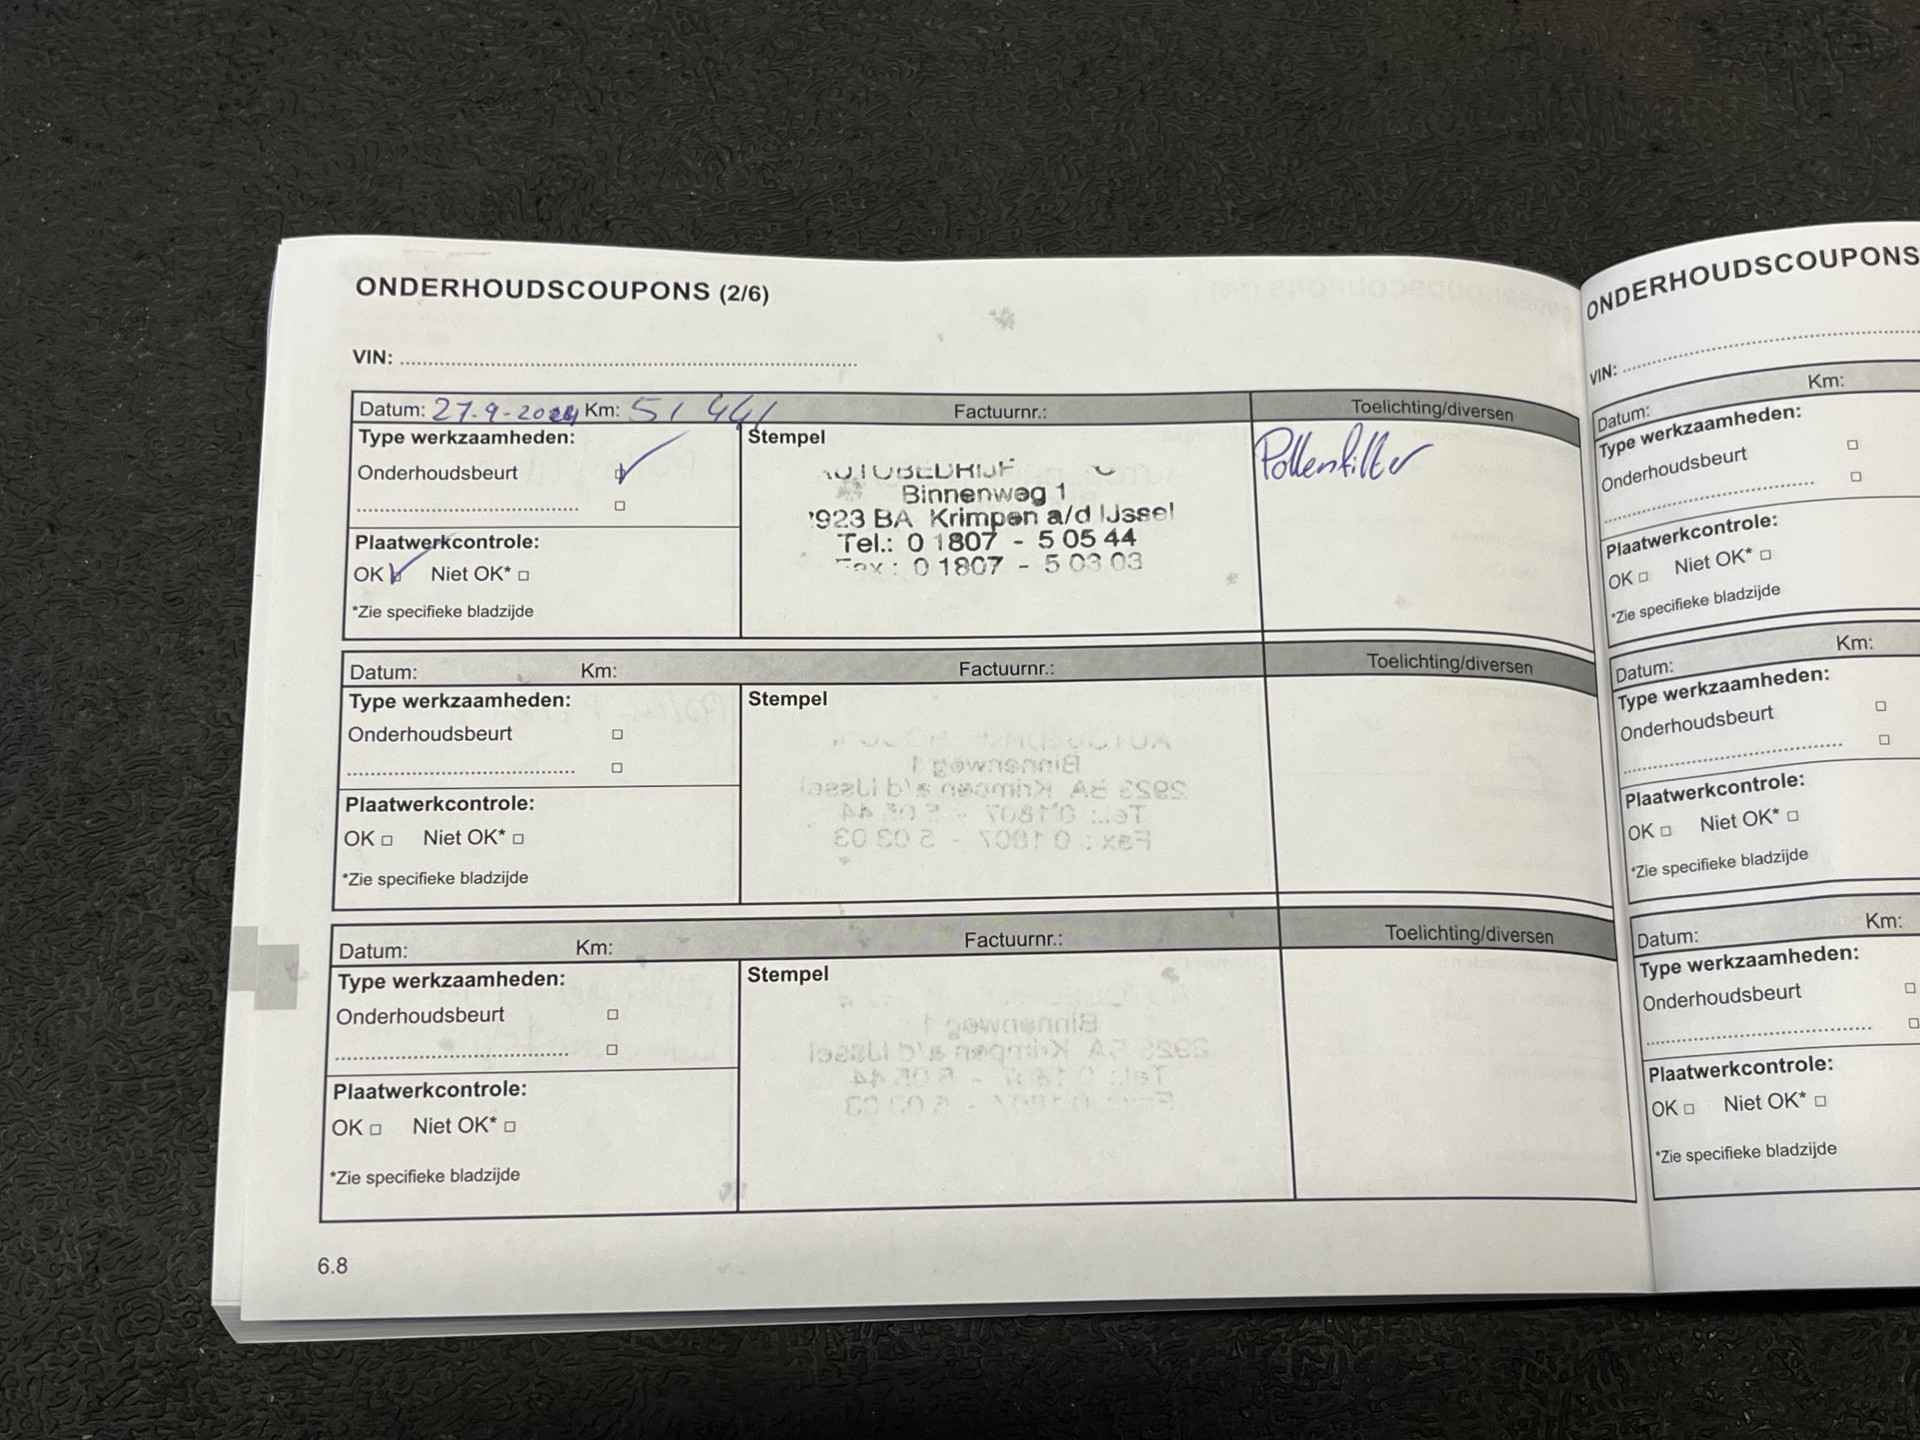 ONDERHOUDSCOUPONS (2/6)
VIN:
Datum: 27-9-2024 Km: 51 441 Factuurnr.: Toelichting/diversen
Type werkzaamheden: Stempel
Onderhoudsbeurt
Pollenfilter
AUTOBEDRIJF
Binnenweg 1
2923 BA Krimpen a/d IJssel
Tel.: 0 1807 - 5 05 44
Fax : 0 1807 - 5 03 03
Plaatwerkcontrole:
OK Niet OK*
*Zie specifieke bladzijde
Datum: Km: Factuurnr.: Toelichting/diversen
Type werkzaamheden: Stempel
Onderhoudsbeurt
Plaatwerkcontrole:
OK Niet OK*
*Zie specifieke bladzijde
Datum: Km: Factuurnr.: Toelichting/diversen
Type werkzaamheden: Stempel
Onderhoudsbeurt
Plaatwerkcontrole:
OK Niet OK*
*Zie specifieke bladzijde
6.8
ONDERHOUDSCOUPONS
VIN:
Datum: Km:
Type werkzaamheden:
Onderhoudsbeurt
Plaatwerkcontrole:
OK Niet OK*
*Zie specifieke bladzijde
Datum: Km:
Type werkzaamheden:
Onderhoudsbeurt
Plaatwerkcontrole:
OK Niet OK*
*Zie specifieke bladzijde
Datum: Km:
Type werkzaamheden:
Onderhoudsbeurt
Plaatwerkcontrole:
OK Niet OK*
*Zie specifieke bladzijde